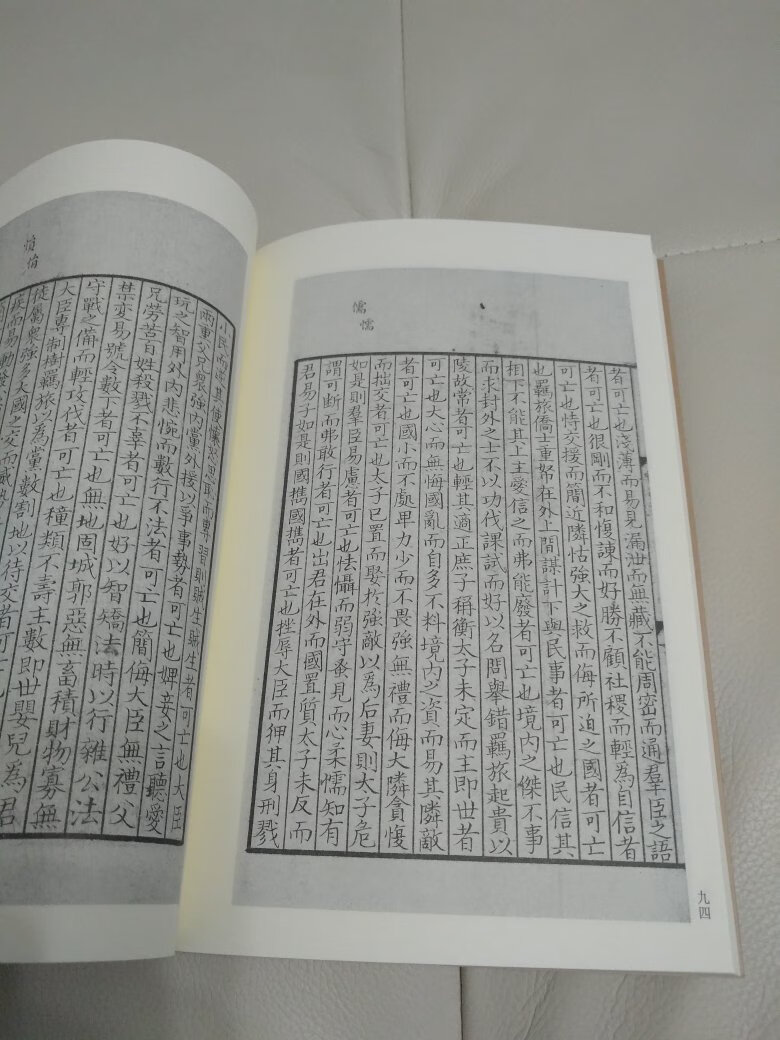 儒懦
者可亡也淺薄而易見漏泄而無藏不能周密而通羣臣之語
者可亡也很剛而不和愎諫而好勝不顧社稷而輕為自信者
可亡也恃交援而簡近隣怙強大之救而侮所迫之國者可亡
也羈旅僑士重帑在外上間謀計下與民事者可亡也民信其
相下不能其上主愛信之而弗能廢者可亡也境內之傑不事
而求封外之士不以功伐課試而好以名問舉錯羈旅起貴以
陵故常者可亡也輕其適正庶子稱衡太子未定而主即世者
可亡也大心而無悔國亂而自多不料境內之資而易其隣敵
者可亡也國小而不處卑力少而不畏強無禮而侮大隣貪愎
而拙交者可亡也太子已置而娶扵強敵以為后妻則太子危
如是則羣臣易慮者可亡也怯懾而弱守蚤見而心柔懦知有
謂可斷而弗敢行者可亡也出君在外而國置質太子未反而
君易子如是則國攜國攜者可亡也挫辱大臣而狎其身刑戮
九四
小民而逆其使懷怒思恥而專習則賊生賊生者可亡也大臣
兩重父兄衆強內黨外援以爭事勢者可亡也婢妾之言聽愛
玩之智用外內悲惋而數行不法者可亡也簡侮大臣無禮父
兄勞苦百姓殺戮不辜者可亡也好以智矯法時以行雜公法
禁变易號令數下者可亡也無地固城郭惡無畜積財物寡無
守戰之備而輕攻伐者可亡也種類不壽主數即世嬰兒為君
大臣專制樹羈旅以為黨數割地以待交者可亡
徒屬衆強多大國之交而威勢